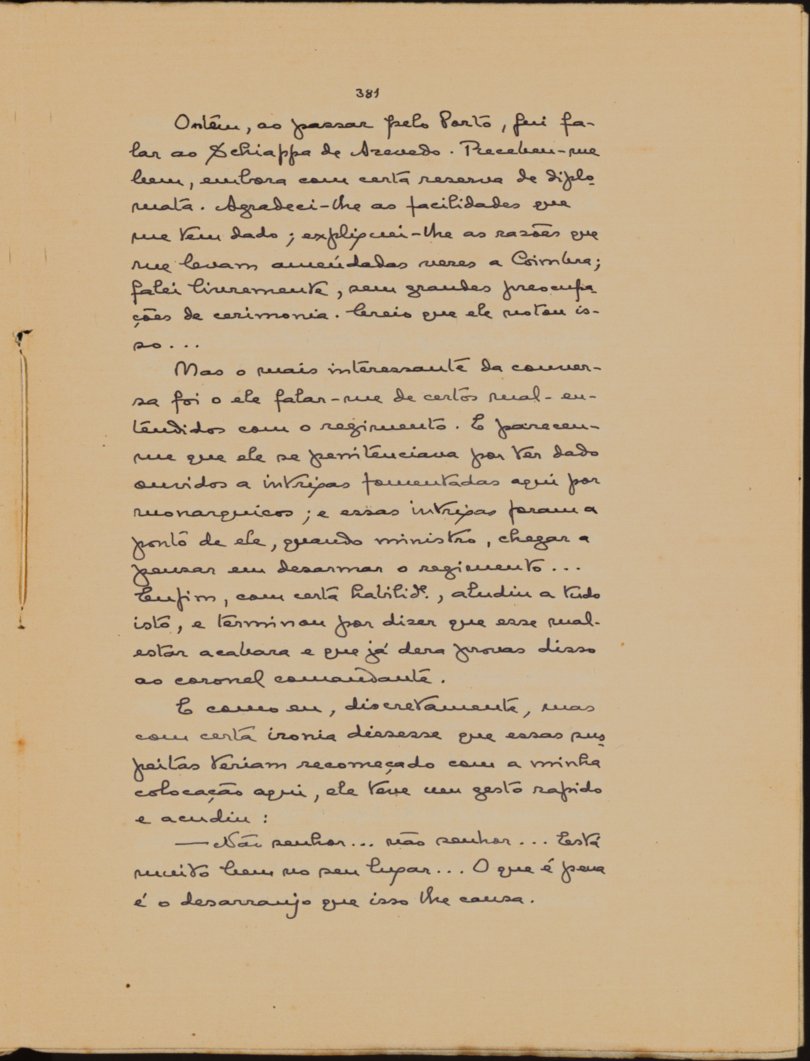 381
Ontêm, ao passar pelo Porto, fui fa-
lar ao Schiappa de Azevedo. Recebeu-me
bem, embora com certa reserva de diplo-
mata. Agradeci-lhe as facilidades que
me tem dado; expliquei-lhe as razões que
me levam ameúdadas vezes a Coimbra;
falei livremente, sem grandes preocupa
ções de cerimonia. Creio que ele notou is-
so...
Mas o mais interessante da conver-
sa foi o ele falar-me de certos mal-en-
tendidos com o regimento. E pareceu-
me que ele se penitenciava por ter dado
ouvidos a intrigas fomentadas aqui por
monarquicos; e essas intrigas foram a
ponto de ele, quando ministro, chegar a
pensar em desarmar o regimento...
Enfim, com certa habilid.e, aludiu a tudo
isto, e terminou por dizer que esse mal-
estar acabara e que já dera provas disso
ao coronel comandante.
E como eu, discretamente, mas
com certa ironia dissesse que essas sus-
peitas teriam recomeçado com a minha
colocação aqui, ele teve um gesto rapido
e acudiu:
— Não senhor... não senhor... Está
muito bem no seu lugar... O que é pena
é o desarranjo que isso lhe causa.